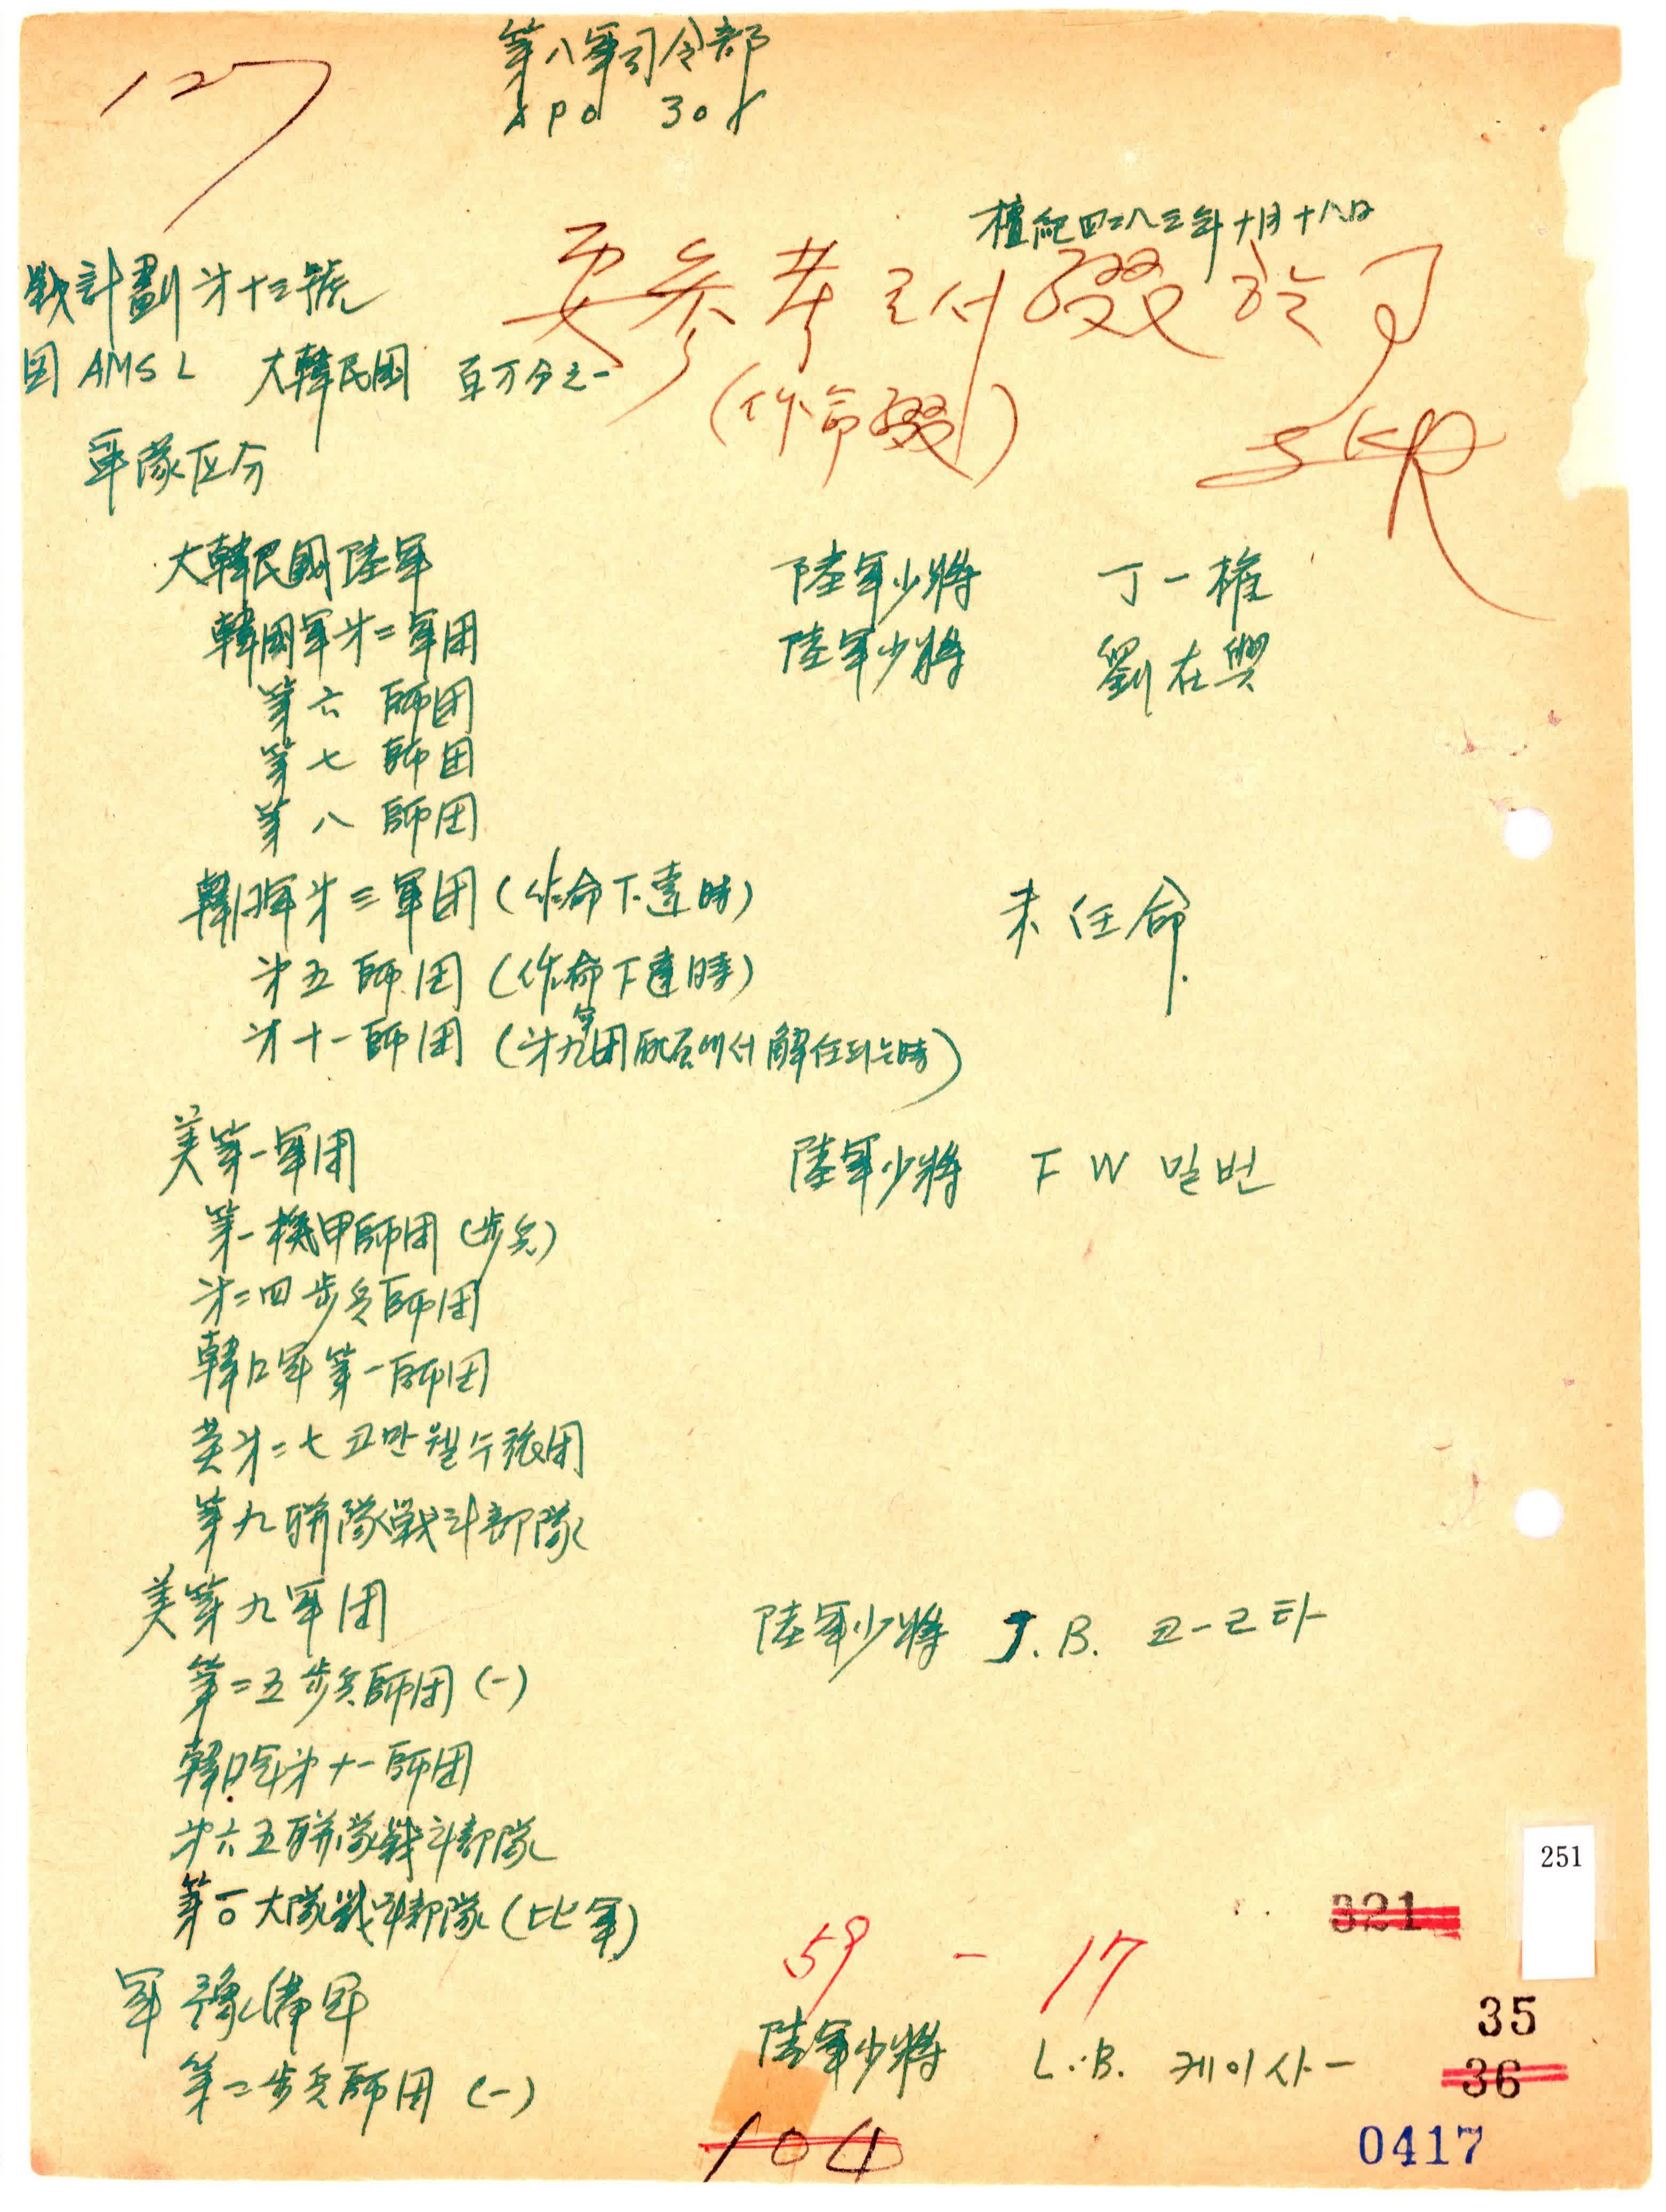 127
第八軍司令部
APO 301
檀紀四二八三年十月十八日
要參考로付綴할것
(作命綴)
戰計劃 第十三號
図 AMS L 大韓民国 百万分之一
軍隊区分
大韓民國陸軍 陸軍少將 丁一權
韓國軍第二軍団 陸軍少將 劉在興
第六 師団
第七 師団
第八 師団
韓国軍第三軍団 (作命下達時) 未任命
第五師団 (作命下達時)
第十一師団 (第九軍団配属에서 解任되는時)
美第一軍団 陸軍少將 F W 밀번
第一機甲師団 (步兵)
第二四步兵師団
韓国軍第一師団
英第二七코만웰스旅団
第九聯隊戰斗部隊
美第九軍団 陸軍少將 J.B. 코-르타-
第二五步兵師団 (-)
韓国军第十一師団
第六五聯隊戰斗部隊
第一〇大隊戰斗部隊 (比軍)
59 - 17
軍豫備軍 陸軍少將 L.B. 케이사-
第二步兵師団 (-)
104
321
251
35
36
0417